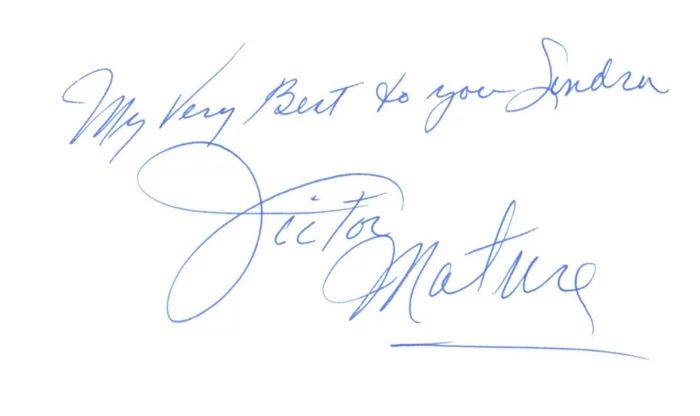 My Very Best to you Sandra
Victor
Mature